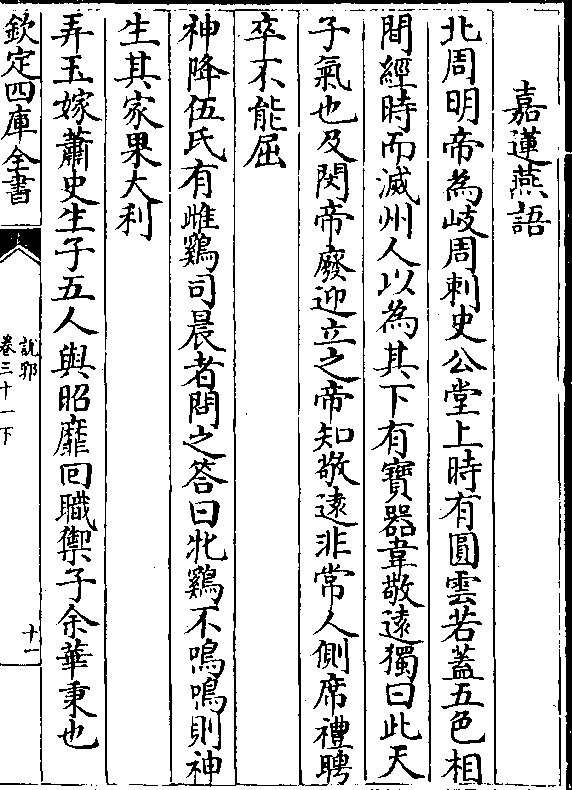 嘉蓮燕語
北周明帝為岐周刺史公堂上時有圓雲若蓋五色相
間經時而滅州人以為其下有寶器韋敬遠獨曰此天
子氣也及閔帝廢迎立之帝知敬遠非常人側席禮聘
卒不能屈
神降伍氏有雌鷄司晨者問之答曰牝鷄不鳴鳴則神
生其家果大利
弄玉嫁蕭史生子五人與昭靡回職禦子余華秉也
欽定四庫全書
說郛
卷三十一下
十一